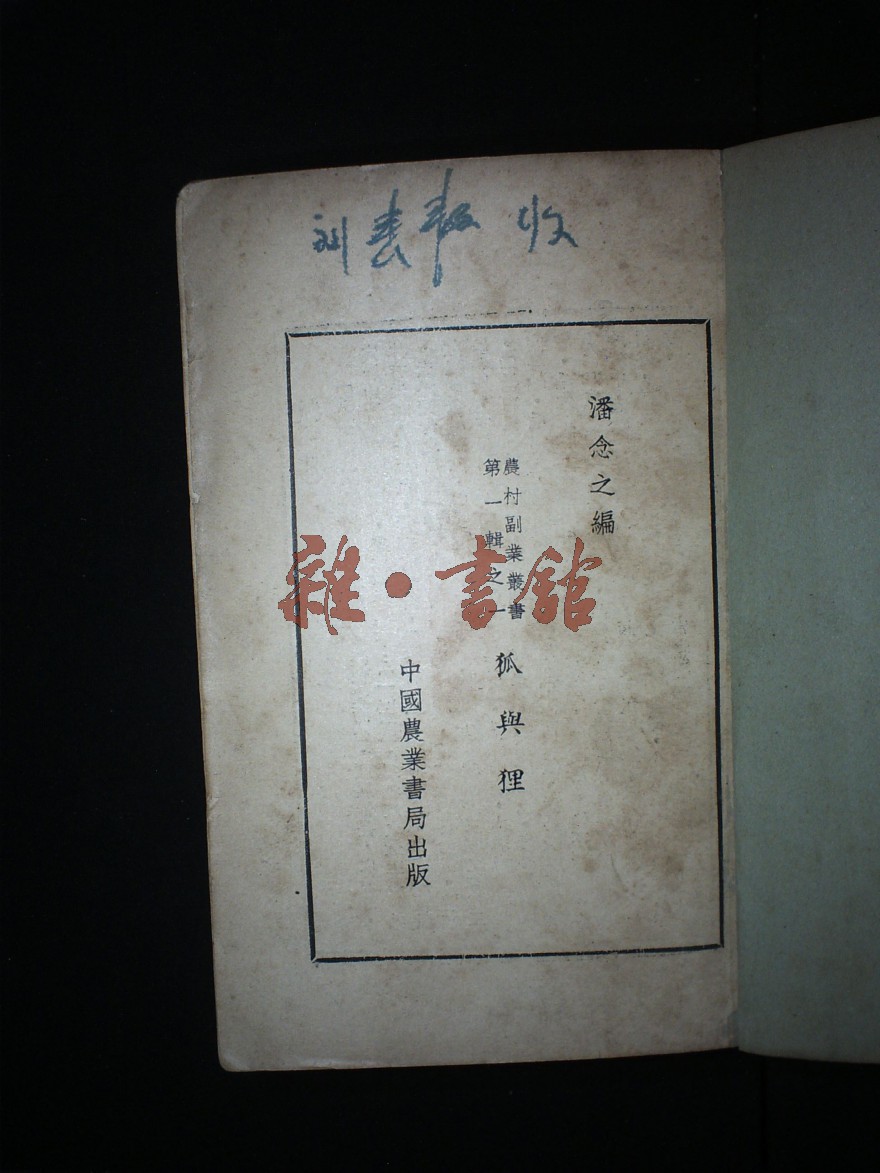 收
潘念之編
農村副業叢書
第一輯之一
狐與狸
中國農業書局出版
雜·書館